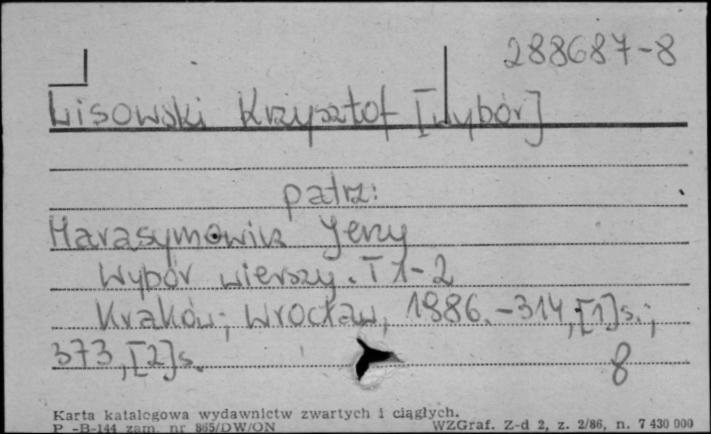 288687-8
Lisowski Krzysztof [Wybór]
patrz:
Harasymowicz Jerzy
Wybór wierszy. T 1-2
Kraków; Wrocław, 1986. - 314, [1] s.;
373, [2] s.
8
Karta katalogowa wydawnictw zwartych i ciągłych.
P -B-144 zam. nr 865/DW/ON WZGraf. Z-d 2, z. 2/86, n. 7 430 000